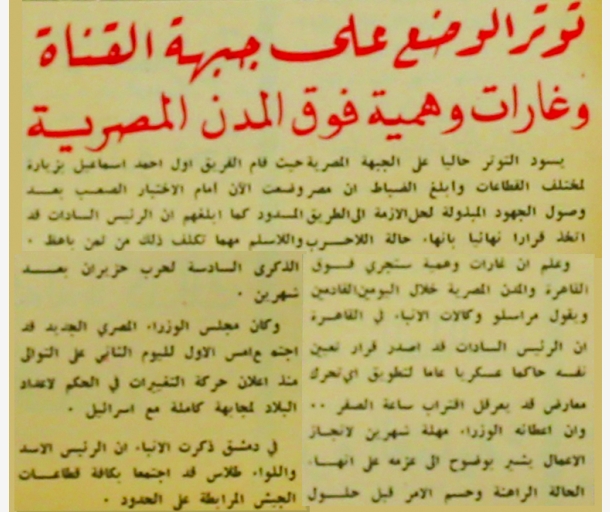 توتر الوضع على جبهة القناة
وغارات وهمية فوق المدن المصرية
يسود التوتر حاليا على الجبهة المصرية
لمختلف القطاعات وأبلغ الضباط ان مصر
وصول الجهود المبذولة لحل الازمة الى الطريق
اتخذ قرارا نهائيا بانهاء حالة اللاحرب
وعلم ان غارات وهمية ستجري فوق
القاهرة والمدن المصرية خلال اليومين القادمين
ويقول مراسلو وكالات الانباء في القاهرة
ان الرئيس السادات قد اصدر قرار تعيين
نفسه حاكما عسكريا عاما لتطويق اي تحرك
معارض قد يعرقل اقتراب ساعة الصفر ..
وان اعطائه الوزراء مهلة شهرين لانجاز
الاعمال يشير بوضوح الى عزمه على انهاء
الحالة الراهنة وحسم الامر قبل حلول
حيث قام الفريق اول احمد اسماعيل بزيارة
وضعت الآن أمام الاختبار الصعب بعد
المسدود كما ابلغهم ان الرئيس السادات قد
واللاسلم مهما تكلف ذلك من ثمن باهظ .
الذكرى السادسة لحرب حزيران بعد
شهرين .
وكان مجلس الوزراء المصري الجديد قد
اجتمع امس الاول لليوم الثاني على التوالي
منذ اعلان حركة التغييرات في الحكم لاعداد
البلاد لمجابهة كاملة مع اسرائيل .
في دمشق ذكرت الانباء ان الرئيس الاسد
واللواء طلاس قد اجتمعا بكافة قطاعات
الجيش المرابطة على الحدود .